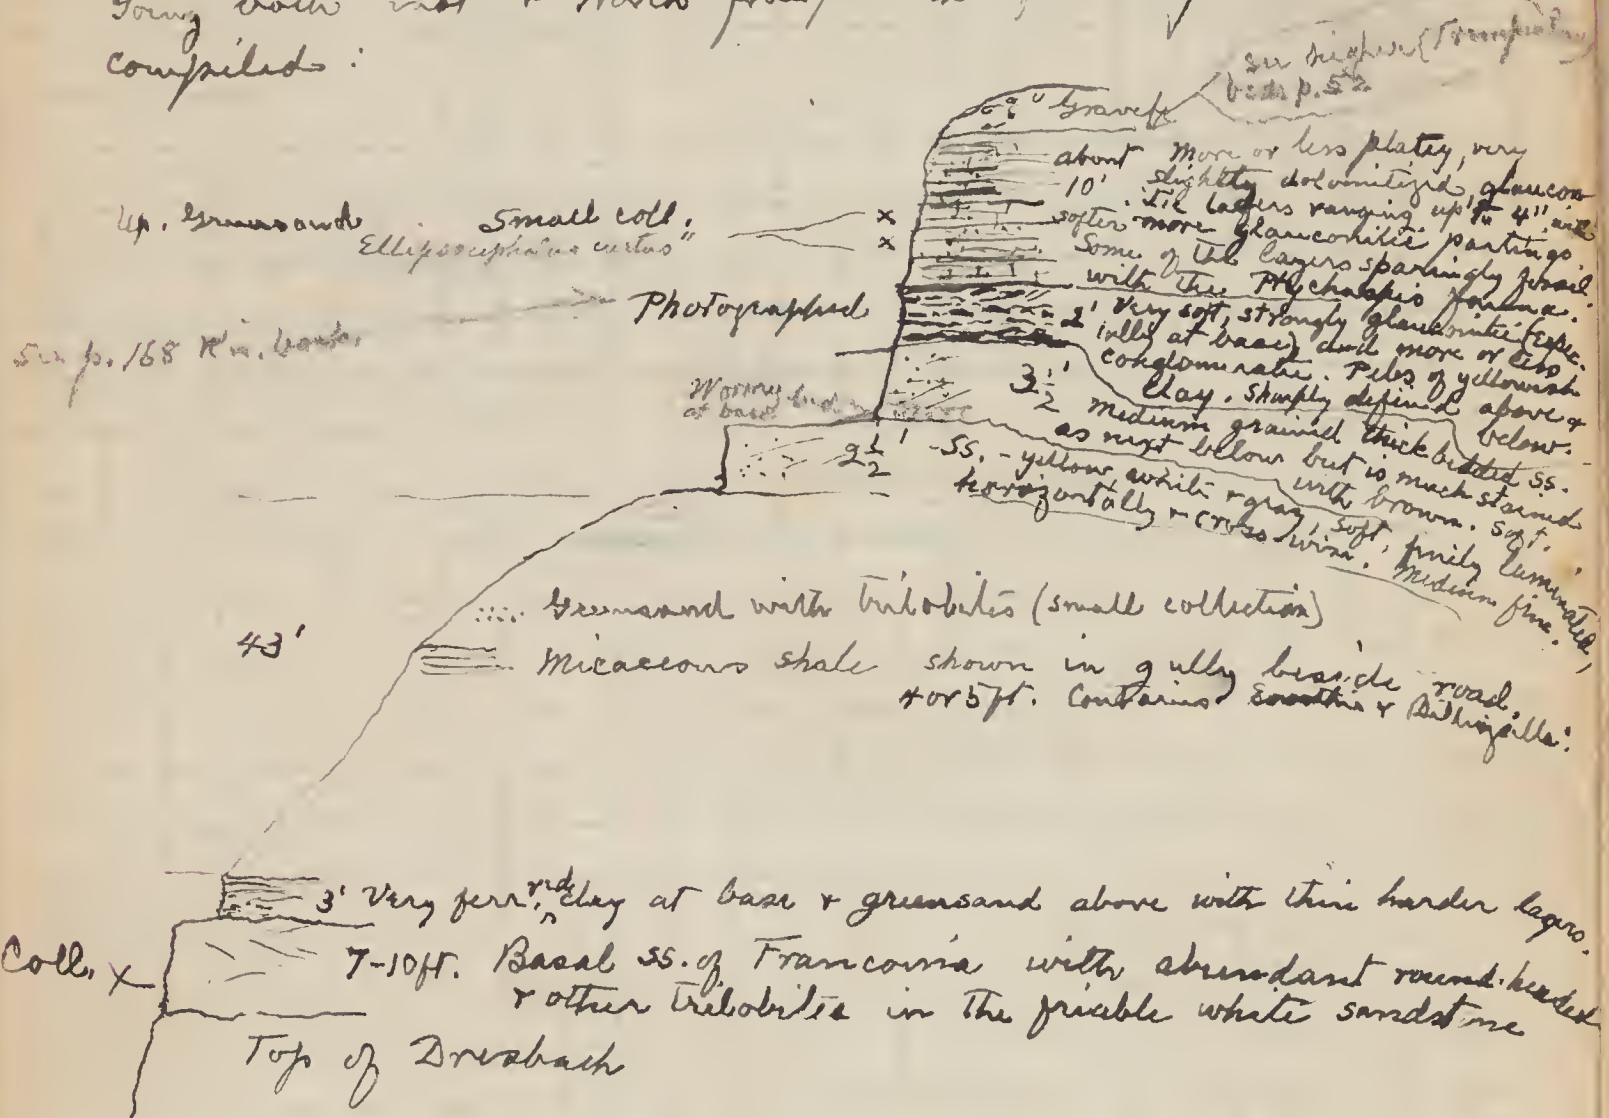 Going both East & North from
compiled :
see higher (Trempealeau)
beds p. 52
Gravel
about 10'. More or less platey, very
slightly dolomitized, glaucon
itic layers ranging up to 4", and
softer more glauconitic partings.
Some of the layers sparingly fossil.
with the Ptychaspis fauna.
Up. Greensand
Small coll.
Ellipsocephalus curtus"
Photographed
See p. 168 Kin. book.
2' Very soft, strongly glauconitic (espec-
ially at base) and more or less
conglomeratic. Pebs of yellowish
clay. Sharply defined above &
below.
3 1/2' medium grained thick bedded ss.
as next below but is much stained
with brown. Soft.
Wormy bed
at base
2 1/2' - SS. - yellow, white & gray, soft, finely laminated,
horizontally & cross-wise. Medium fine.
43'
Greensand with trilobites (small collection)
Micaceous shale shown in gully beside road,
4 or 5 ft. Contains & Billingsella.
3' Very ferr. red clay at base & greensand above with thin harder layers.
Coll. x
7-10 ft. Basal ss. of Franconia with abundant round-headed
& other trilobites in the friable white sandstone
Top of Dresbach